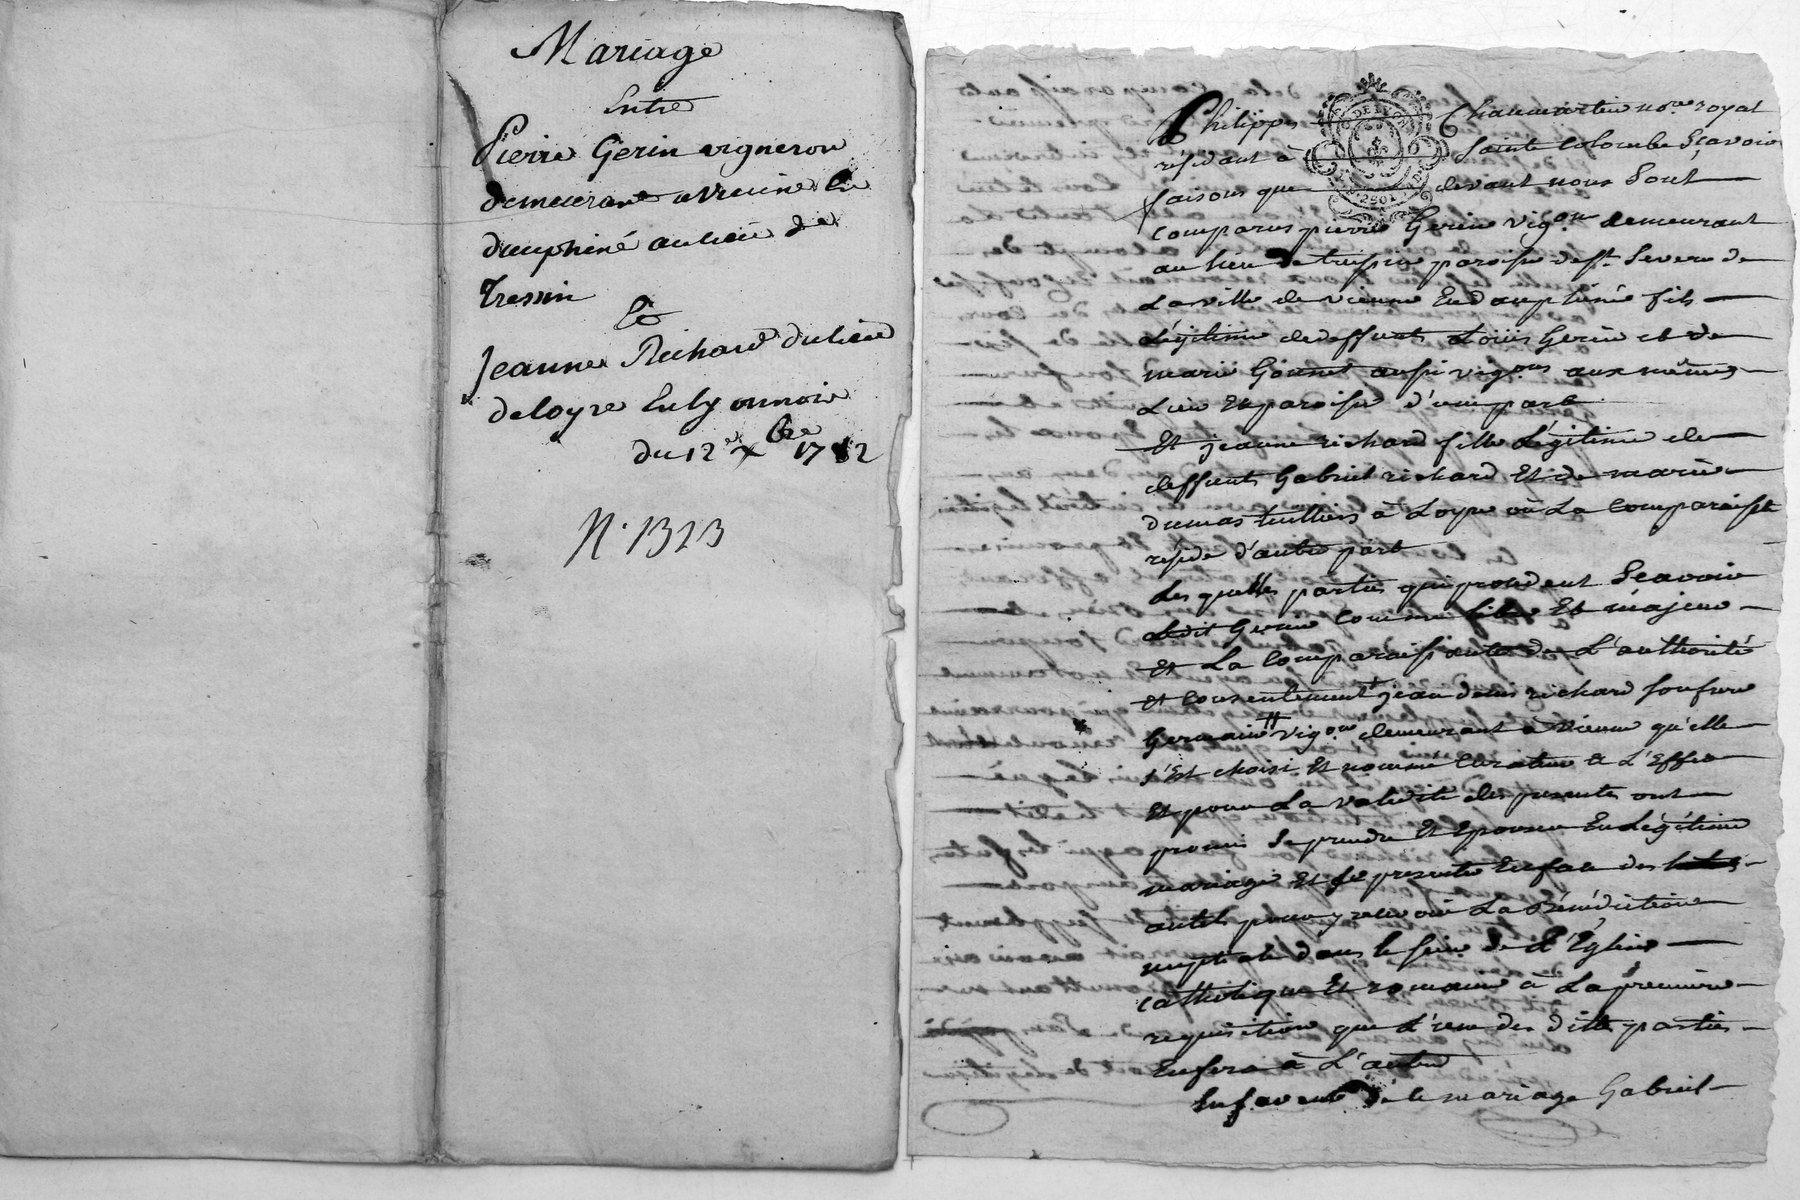 Mariage
Entre
Pierre Gerin vigneron
demeurant a vienne En
dauphiné au lieu de
Tressin
Et
Jeanne Richard du lieu
de loyre En lyonnois
du 12e xbre 1782
N. 1323
Philippe Chaumartin nore royal
residant à Sainte Colombe Sçavoir
faisons que devant nous Sont
comparus pierre Gerin vigon demeurant
au lieu de tressin paroisse de St. Severe de
La ville de vienne En dauphiné fils
Légitime de deffunts Loüis Gerin et de
marie Gonnet aussi vigons aux mêmes
Lieu Et paroisse d'une part
Et jeanne richard fille Légitime de
deffunts Gabriel richard Et de marie
dumas à Loyre où La comparaisste
reside d'autre part
Les quelles parties qui procedent Scavoir
Ledit Gerin comme libre Et majeur
Et La comparaissante de L'authorité
et consentement jean denis richard son frere
Germain vigon demeurant à vienne qu'elle
s'Est choisi Et nommé curateur a L'Effet
Et pour La validité des presentes ont
promis Se prendre Et Epouser En Légitime
mariage Et se presenter En face des
autels pour y recevoir La Bénédiction
nuptiale dans le sein de L'Eglise
catholique Et romaine à La première
requisition que L'une des dittes parties
En fera à L'autre
En faveur de ce mariage Gabriel